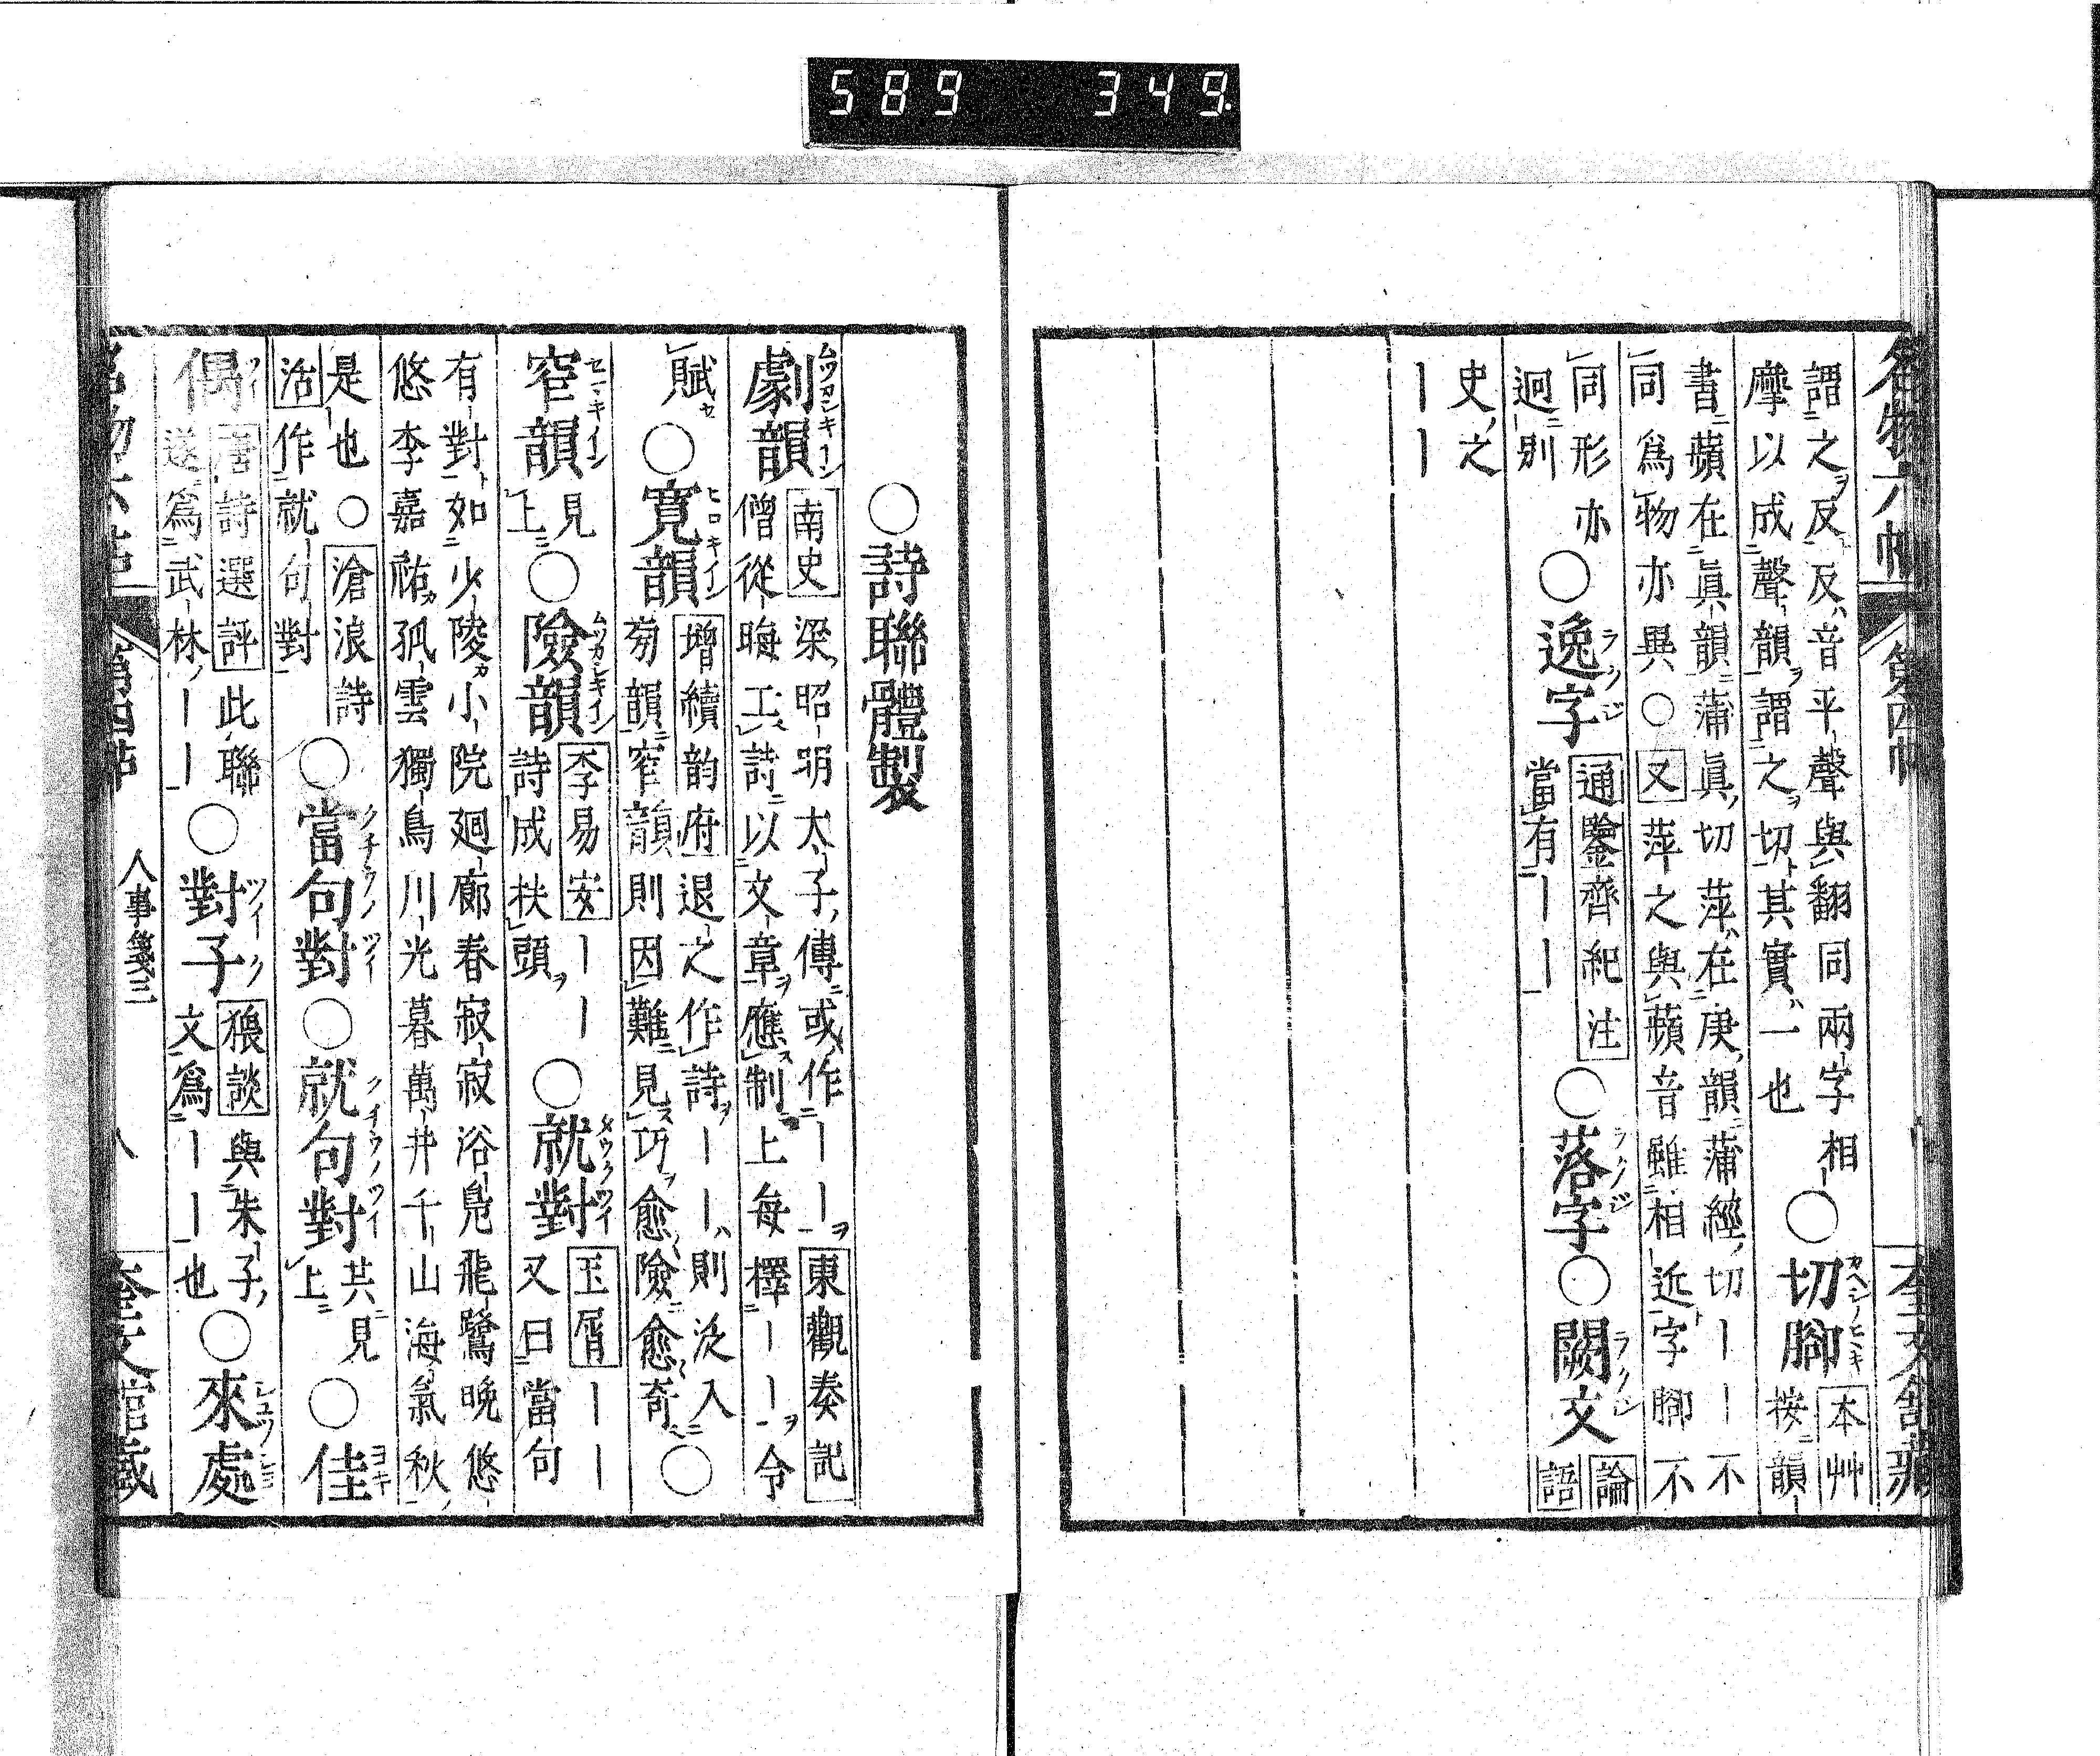 589 349.
名物六帖 第四帖 奎文館藏
謂之反反音平聲與翻同兩字相
摩以成聲韻謂之切其實一也
○切腳
本艸
按韻
書蘋在眞韻蒲眞切萍在庚韻蒲經切ーー不
同爲物亦異○又萍之與蘋音雖相近字腳不
同形亦
迥別
○逸字
通鑒齊紀注
當有ーー
○落字○闕文
論
語
史之
ーー
○詩聯體製
劇韻
南史梁昭明太子傳或作ーー東觀奏記
僧從晦工詩以文章應制上每擇ーー令
賦
○寬韻
增續韵府退之作詩ーー則泛入
菊韻窄韻則因難見巧愈險愈奇
○
窄韻
見
上
○險韻
李易安ーー
詩成扶頭
○就對
玉屑ーー
又曰當句
有對如少陵小院廻廊春寂寂浴鳧飛鷺晚悠
悠李嘉祐孤雲獨鳥川光暮萬井千山海氣秋
是也○滄浪詩
活作就句對
○當句對○就句對
共見
上
○佳
偶
唐詩選評此聯
遂爲武林ーー
○對子
猥談與朱子
文爲ーー也
○來處
名物六帖 第四帖 人事箋三 八 奎文館藏